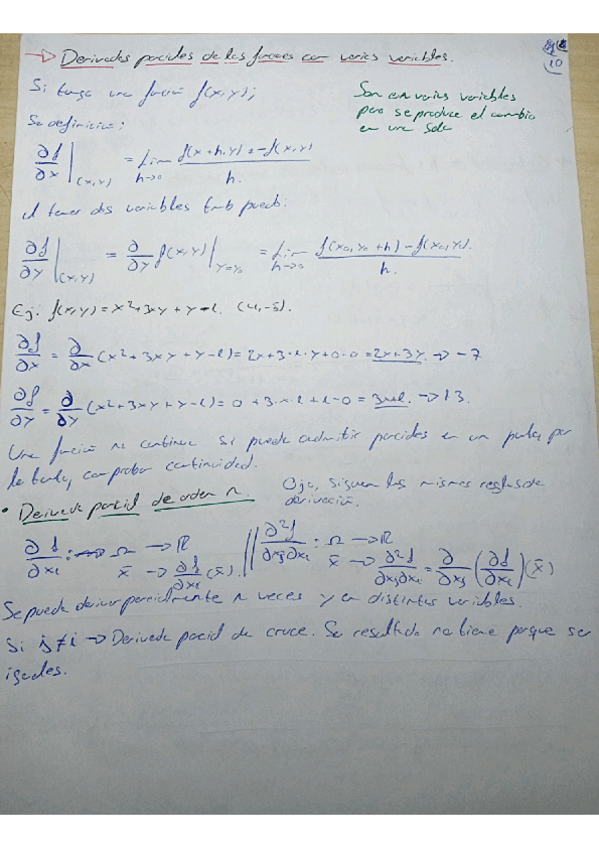 → Derivadas parciales de las funciones con varias variables.
10
Si tengo una función f(x,y);
Son en varias variables
pero se produce el cambio
en una sola
Se definición;
∂f/∂x |(x,y) = lim h→0 f(x+h,y) - f(x,y) / h.
al tener dos variables tmb puedo:
∂f/∂y |(x,y) = ∂/∂y f(x,y) | y=y₀ = lim h→0 f(x₀,y₀+h) - f(x₀,y₀). / h.
Ej: f(x,y) = x²+3xy+y-1. (4,-5).
∂f/∂x = ∂/∂x (x²+3xy+y-1) = 2x+3·1·y+0-0 = 2x+3y. → -7
∂f/∂y = ∂/∂y (x²+3xy+y-1) = 0+3·x·1+1-0 = 3x+1. → 13.
Una función no continua si puede admitir parciales en un punto, por
lo tanto, comprobar continuidad.
• Derivada parcial de orden n.
Ojo, siguen las mismas reglas de
derivación.
∂f/∂xi : Ω → ℝ || ∂²f/∂xj∂xi : Ω → ℝ
x̄ → ∂f/∂xi (x̄) || x̄ → ∂²f/∂xj∂xi = ∂/∂xj (∂f/∂xi)(x̄)
Se puede derivar parcialmente n veces y en distintas variables.
Si j≠i → Derivada parcial de cruce. Su resultado no tiene porque ser
iguales.